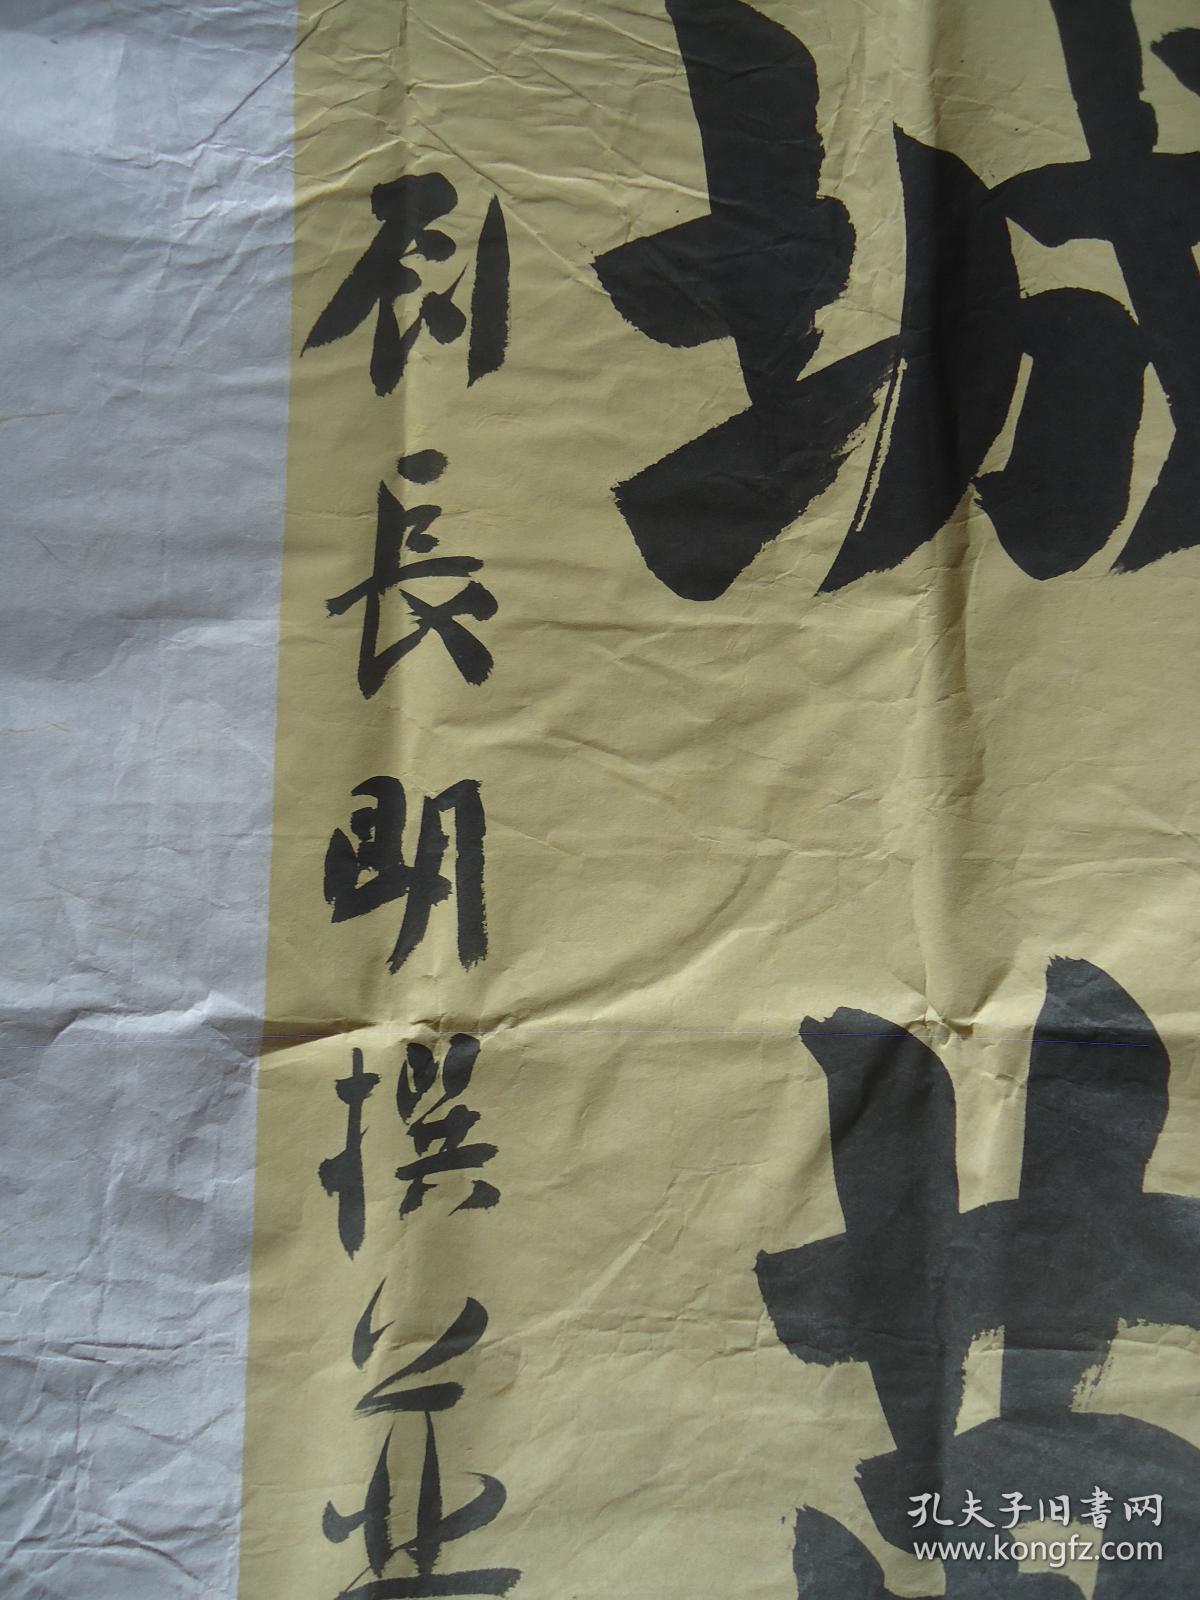 城
長明撰並
孔夫子旧書网
www.kongfz.com